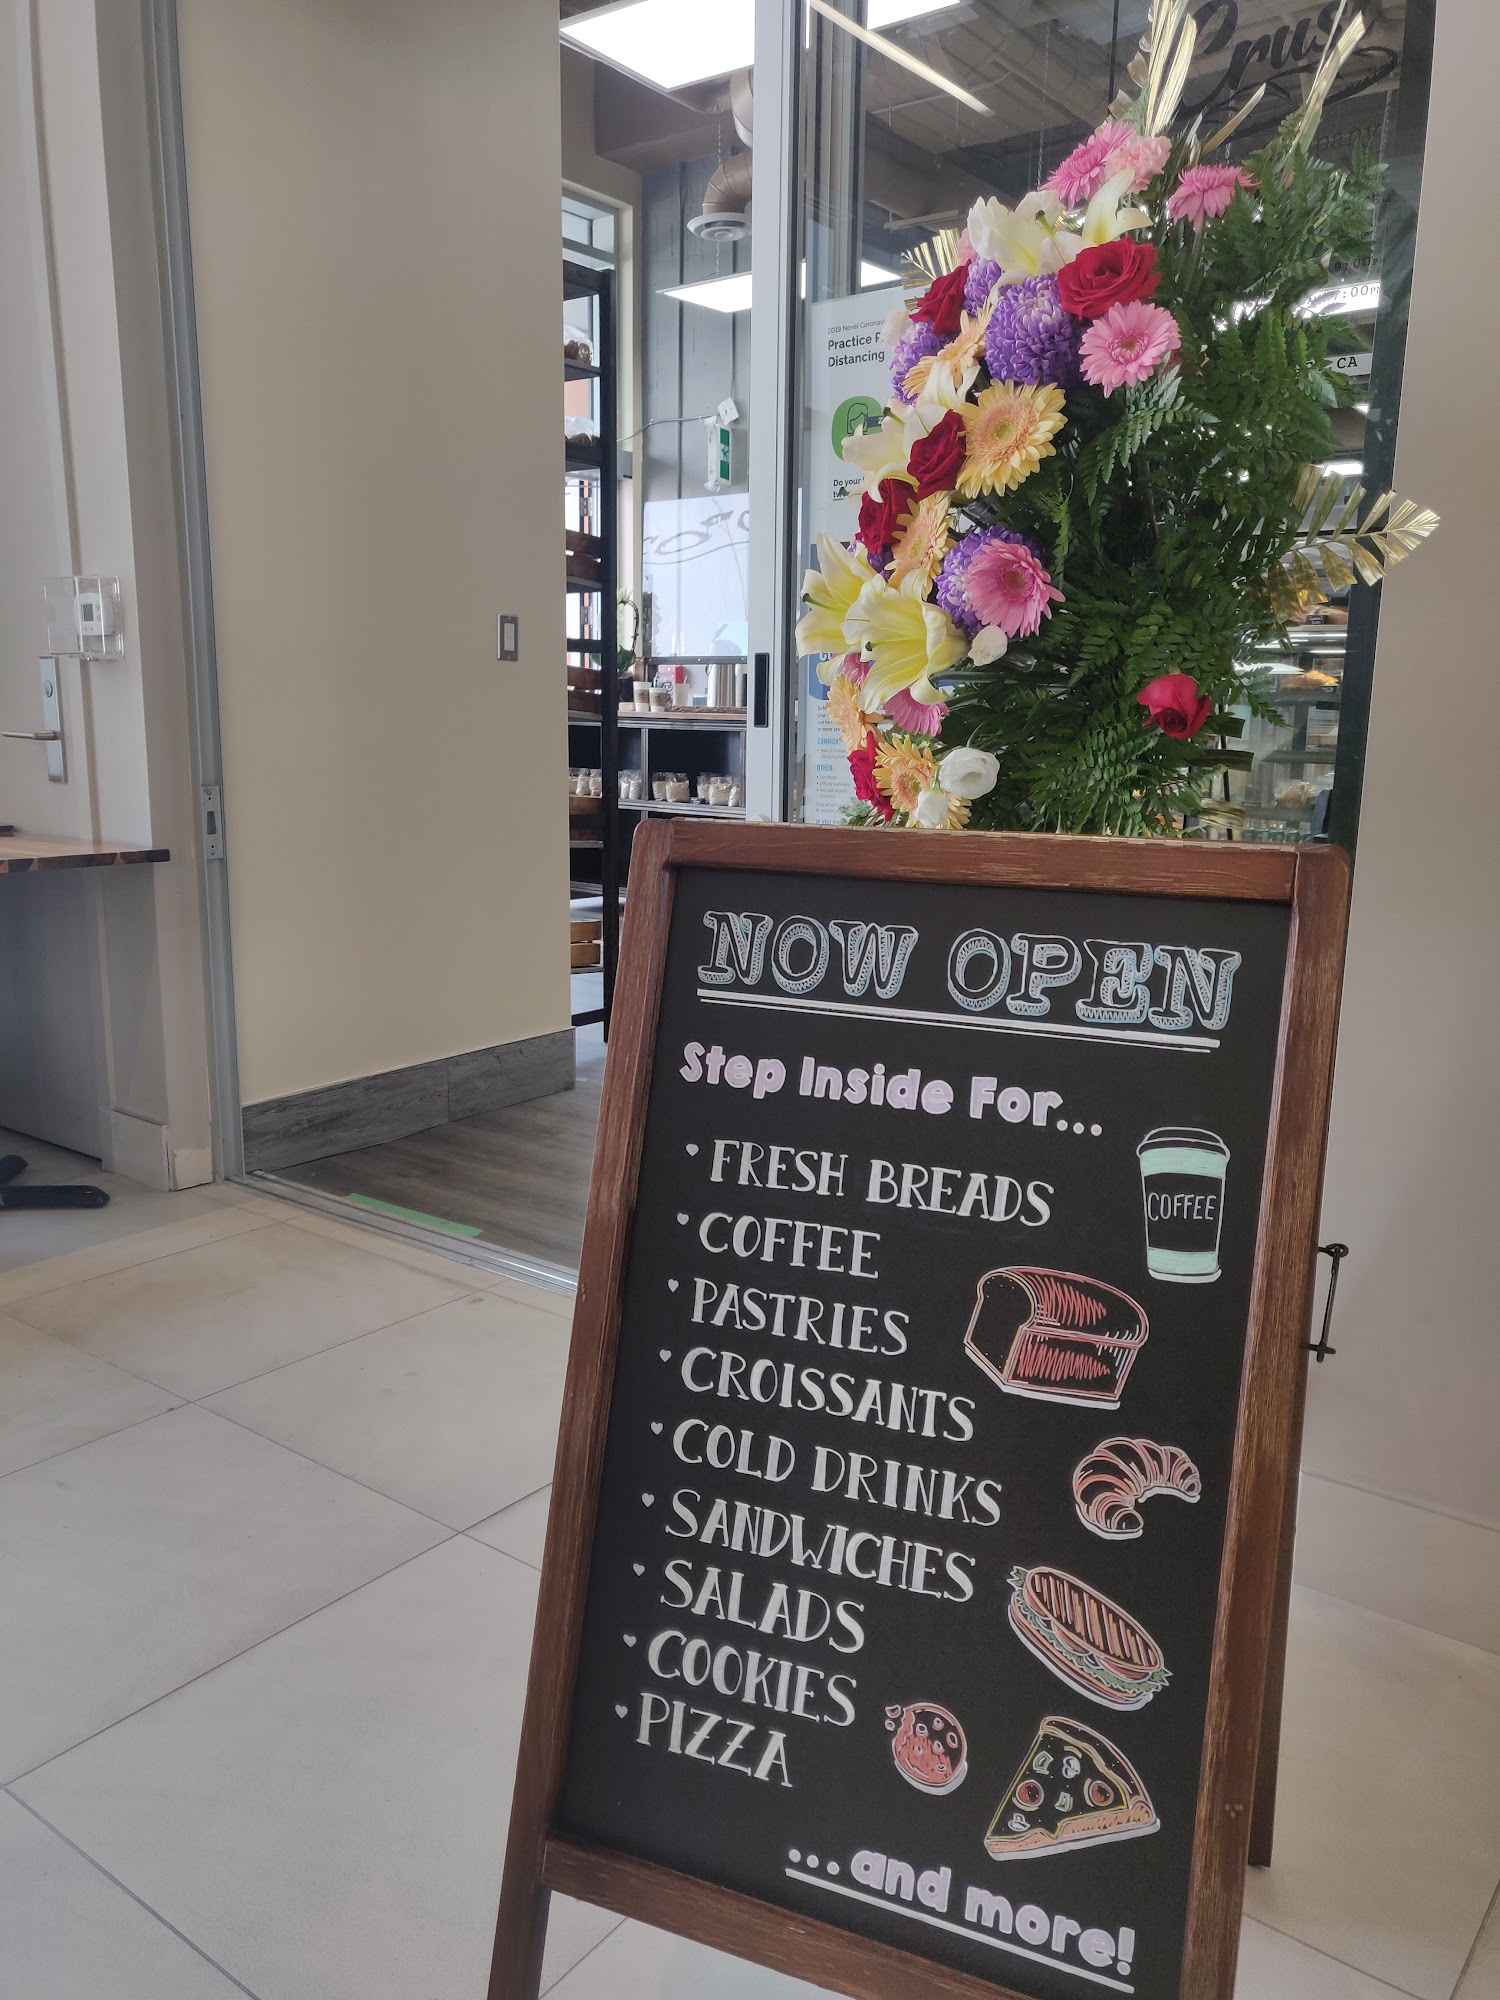 Crust
9:00PM
7:00PM
CA
2019 Novel
Practice
Distancing
Do your
COMMON
OTHER
NOW OPEN
Step Inside For...
FRESH BREADS
COFFEE
PASTRIES
CROISSANTS
COLD DRINKS
SANDWICHES
SALADS
COOKIES
PIZZA
COFFEE
...and more!